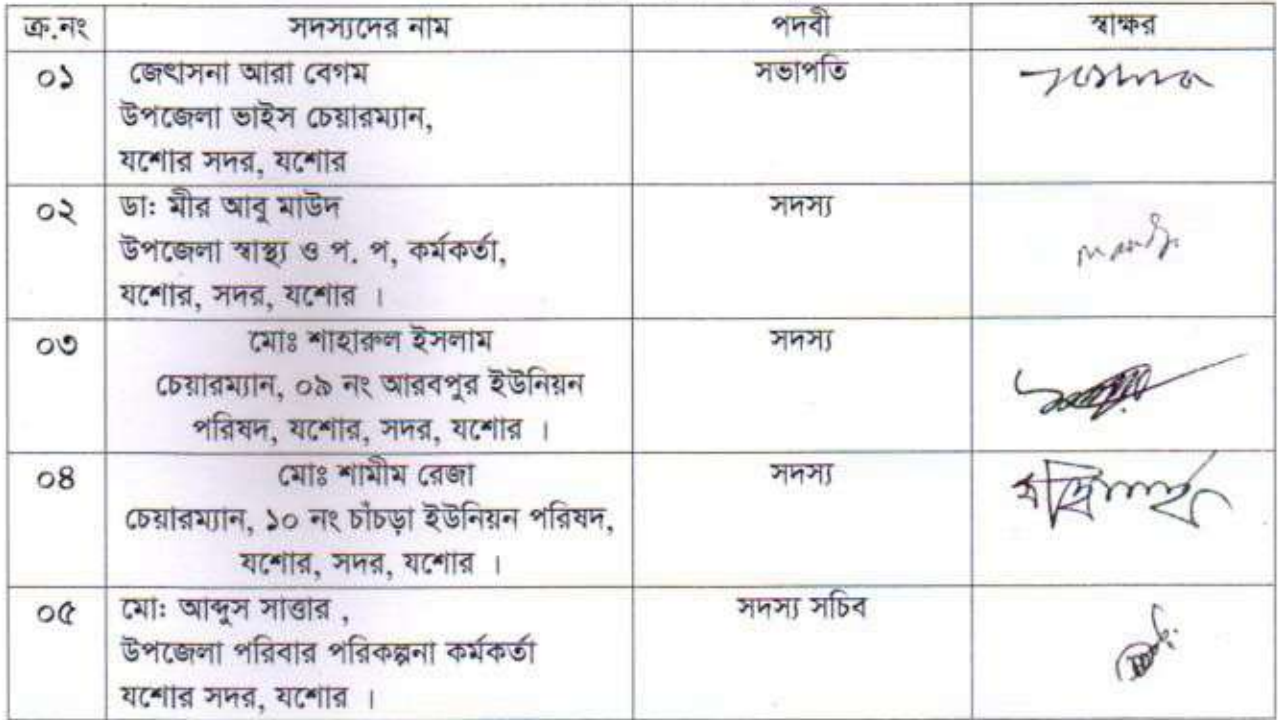 ক্র.নং সদস্যদের নাম পদবী স্বাক্ষর
০১ জেৎাসনা আরা বেগম সভাপতি
উপজেলা ভাইস চেয়ারম্যান,
যশোর সদর, যশোর
০২ ডা: মীর আবু মাউদ সদস্য
উপজেলা স্বাস্থ্য ও প. প, কর্মকর্তা,
যশোর, সদর, যশোর ।
০৩ মোঃ শাহারুল ইসলাম সদস্য
চেয়ারম্যান, ০৯ নং আরবপুর ইউনিয়ন
পরিষদ, যশোর, সদর, যশোর ।
০৪ মোঃ শামীম রেজা সদস্য
চেয়ারম্যান, ১০ নং চাঁচড়া ইউনিয়ন পরিষদ,
যশোর, সদর, যশোর ।
০৫ মো: আব্দুস সাত্তার , সদস্য সচিব
উপজেলা পরিবার পরিকল্পনা কর্মকর্তা
যশোর সদর, যশোর ।